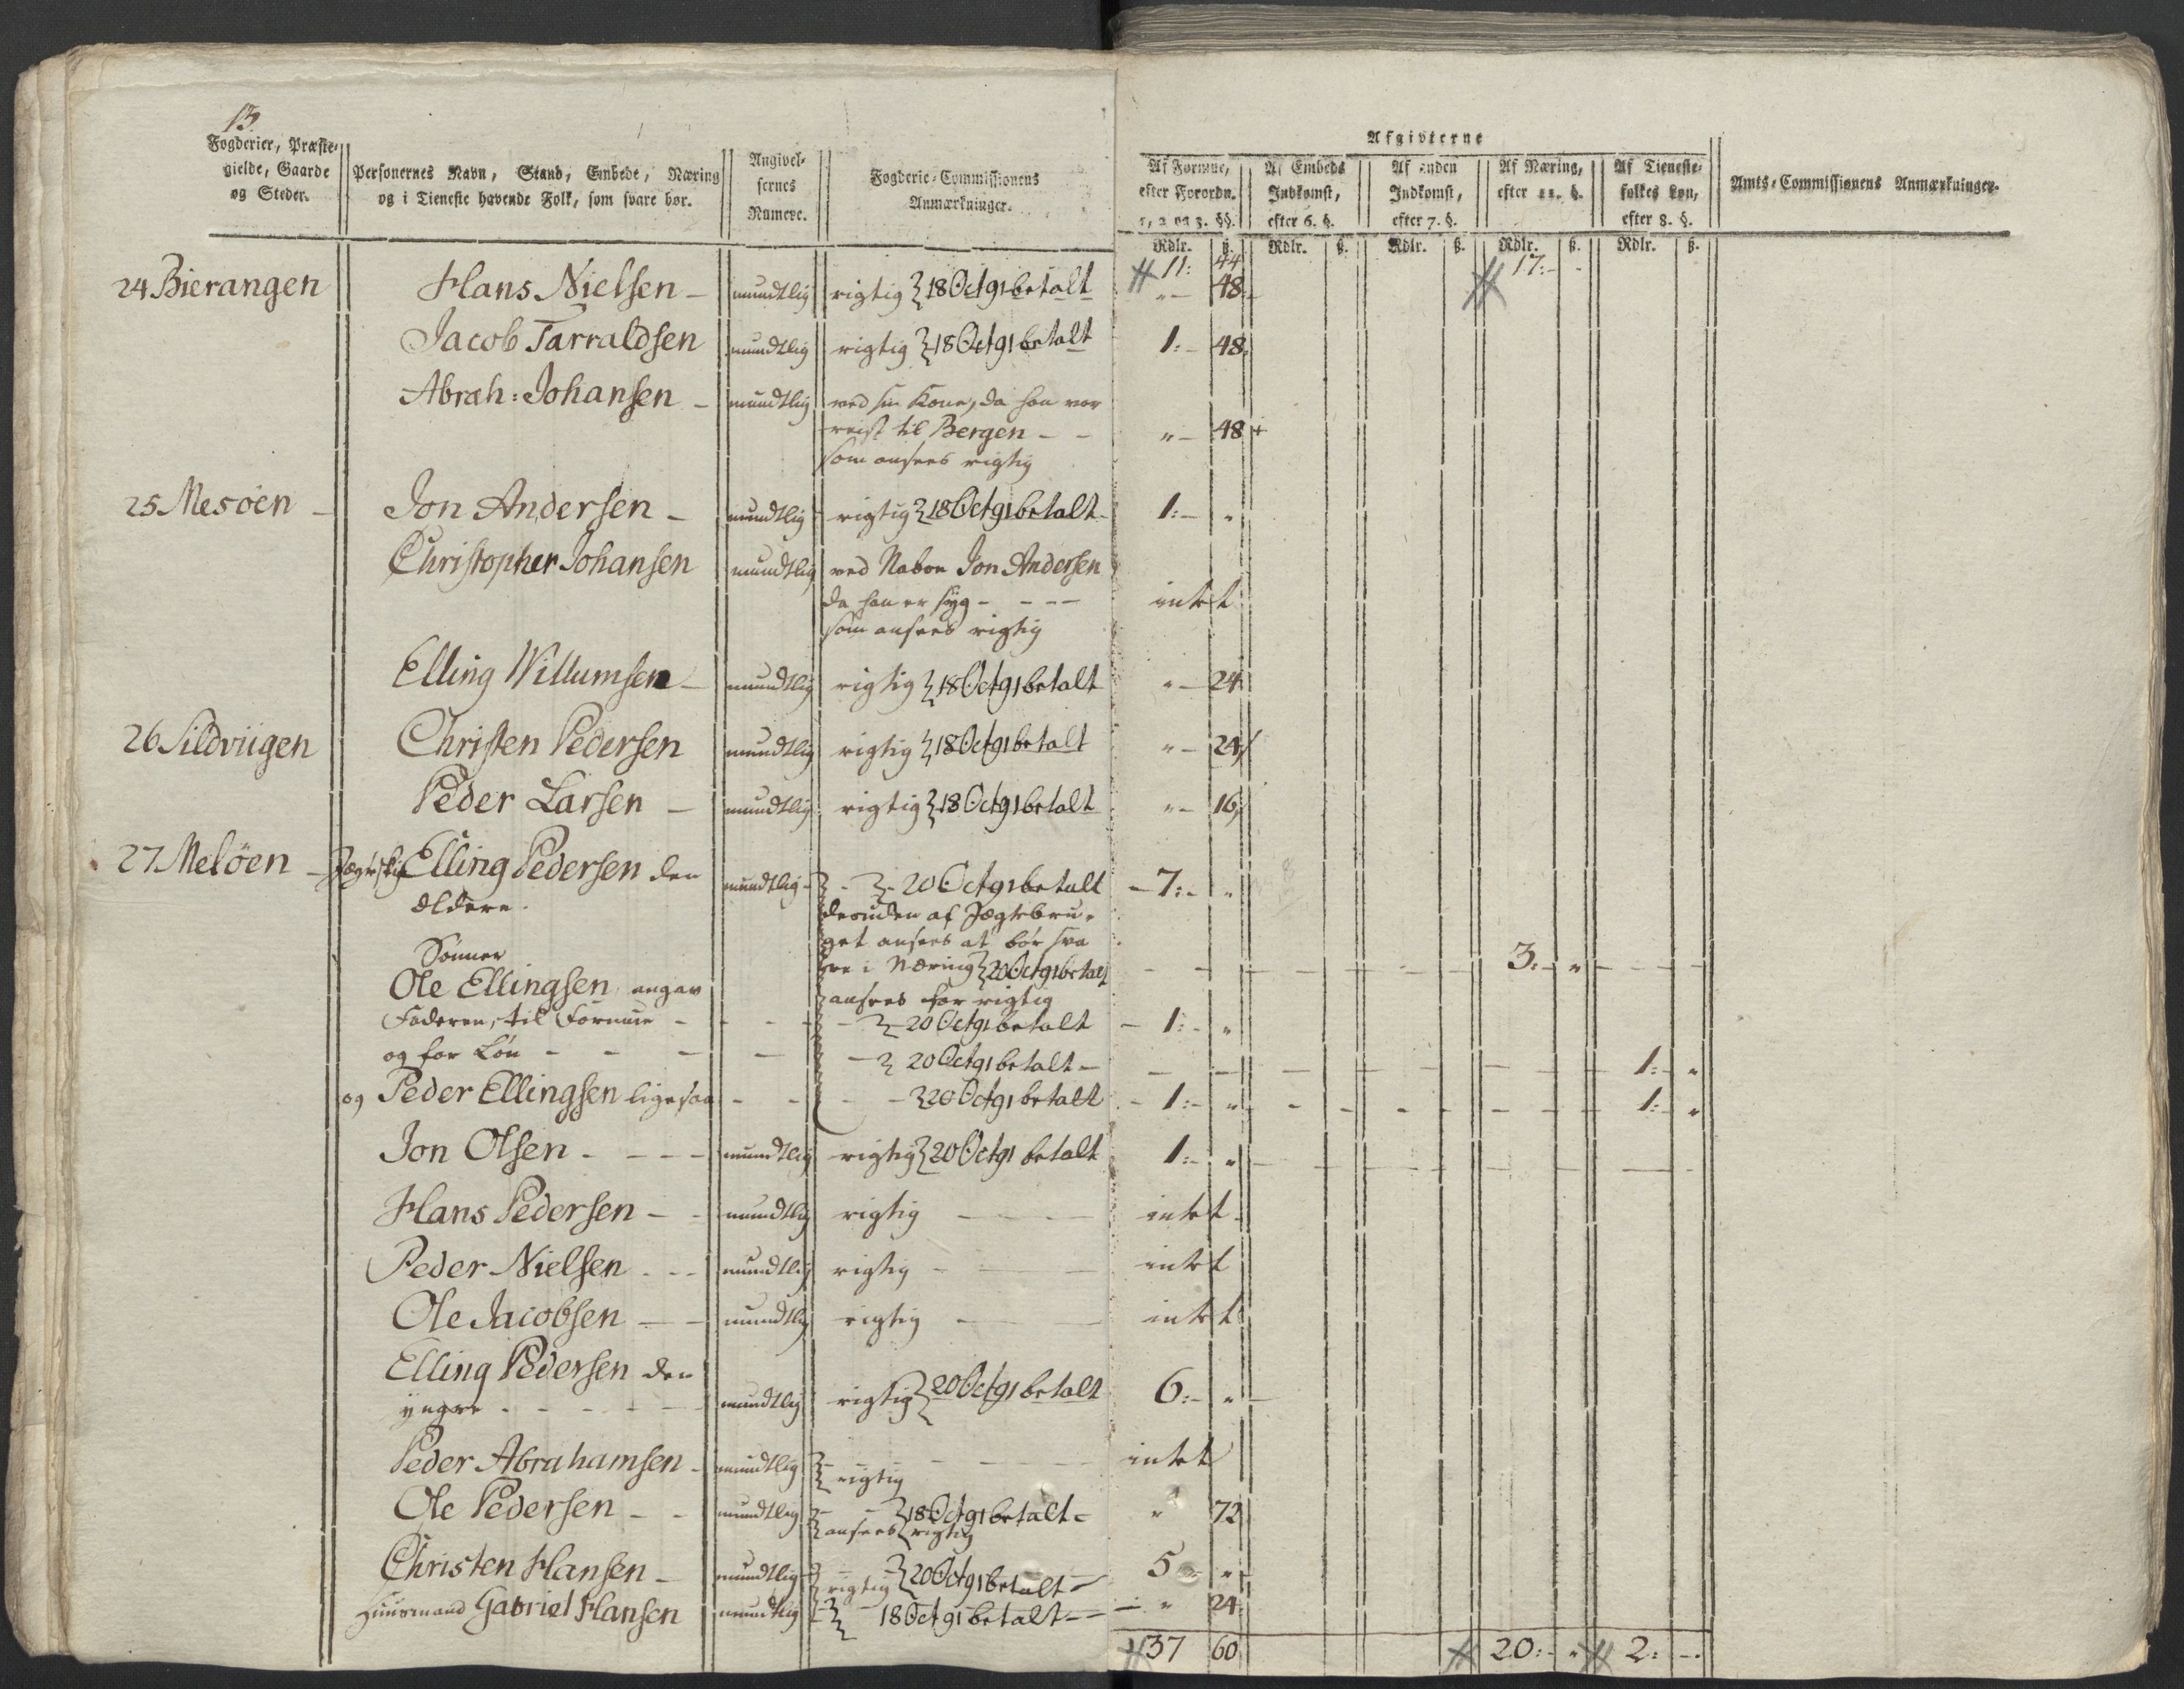 13
Fogderier, Præste-
gielde, Gaarde
og Steder.
Personernes Navn, Stand, Embede, Næring
og i Tieneste havende Folk, som svare bør.
Angivel-
sernes
Numere.
Fogderie-Commissionens
Anmærkninger.
Afgivterne
Af Formue,
efter Forordn.
1, 2 og 3. §§.
Af Embeds
Indkomst,
efter 6. §.
Af anden
Indkomst,
efter 7. §.
Af Næring,
efter 11. §.
Af Tieneste-
folkes Løn,
efter 8. §.
Amts-Commissionens Anmærkninger.
Rdlr. ß. Rdlr. ß. Rdlr. ß. Rdlr. ß. Rdlr. ß.
11: 44 17:-
24 Bierangen Hans Nielsen - mundtlig rigtig 18 Oct 91 betalt " - 48
Jacob Tarraldsen mundtlig rigtig 18 Oct 91 betalt 1:- 48
Abrah: Johansen - mundtlig ved sin Kone, da han var
reist til Bergen - - " - 48 +
som ansees rigtig
25 Mesöen - Jon Andersen - mundtlig rigtig 18 Oct 91 betalt 1:- "
Christopher Johansen mundtlig ved Naboe Jon Andersen
da han er syg - - - - intet
som ansees rigtig
Elling Willumsen - mundtlig rigtig 18 Oct 91 betalt " - 24
26 Sildviigen Christen Pedersen mundtlig rigtig 18 Oct 91 betalt " - 24
Peder Larsen - mundtlig rigtig 18 Oct 91 betalt " - 16
27 Melöen - Elling Pedersen den mundtlig - - 20 Oct 91 betalt - 7:- "
ældere. desuden af Jægtebru-
get ansees at bör sva
Sönner re i Næring 20 Oct 91 betalt 3:- "
Ole Ellingsen angav ansees for rigtig
Faderen, til Formue - - - 20 Oct 91 betalt - 1:- "
og for Lön - - - - 20 Oct 91 betalt - 1:- "
og Peder Ellingsen ligesaa - - - 20 Oct 91 betalt - 1:- " 1:- "
Jon Olsen - - - - mundtlig rigtig 20 Oct 91 betalt 1:- "
Hans Pedersen - - mundtlig rigtig - - - intet
Peder Nielsen - - - mundtlig rigtig - - - intet
Ole Jacobsen - - mundtlig rigtig - - - intet
Elling Pedersen den
yngre - - - - - mundtlig rigtig 20 Oct 91 betalt 6:- "
Peder Abrahamsen - mundtlig rigtig - - - intet
Ole Pedersen - - mundtlig - - 18 Oct 91 betalt - " 72
ansees rigtig
Christen Hansen - mundtlig rigtig 20 Oct 91 betalt - 5 "
Huusmand Gabriel Hansen mundtlig 18 Oct 91 betalt - - - " 24
37 60 20:- " 2:-